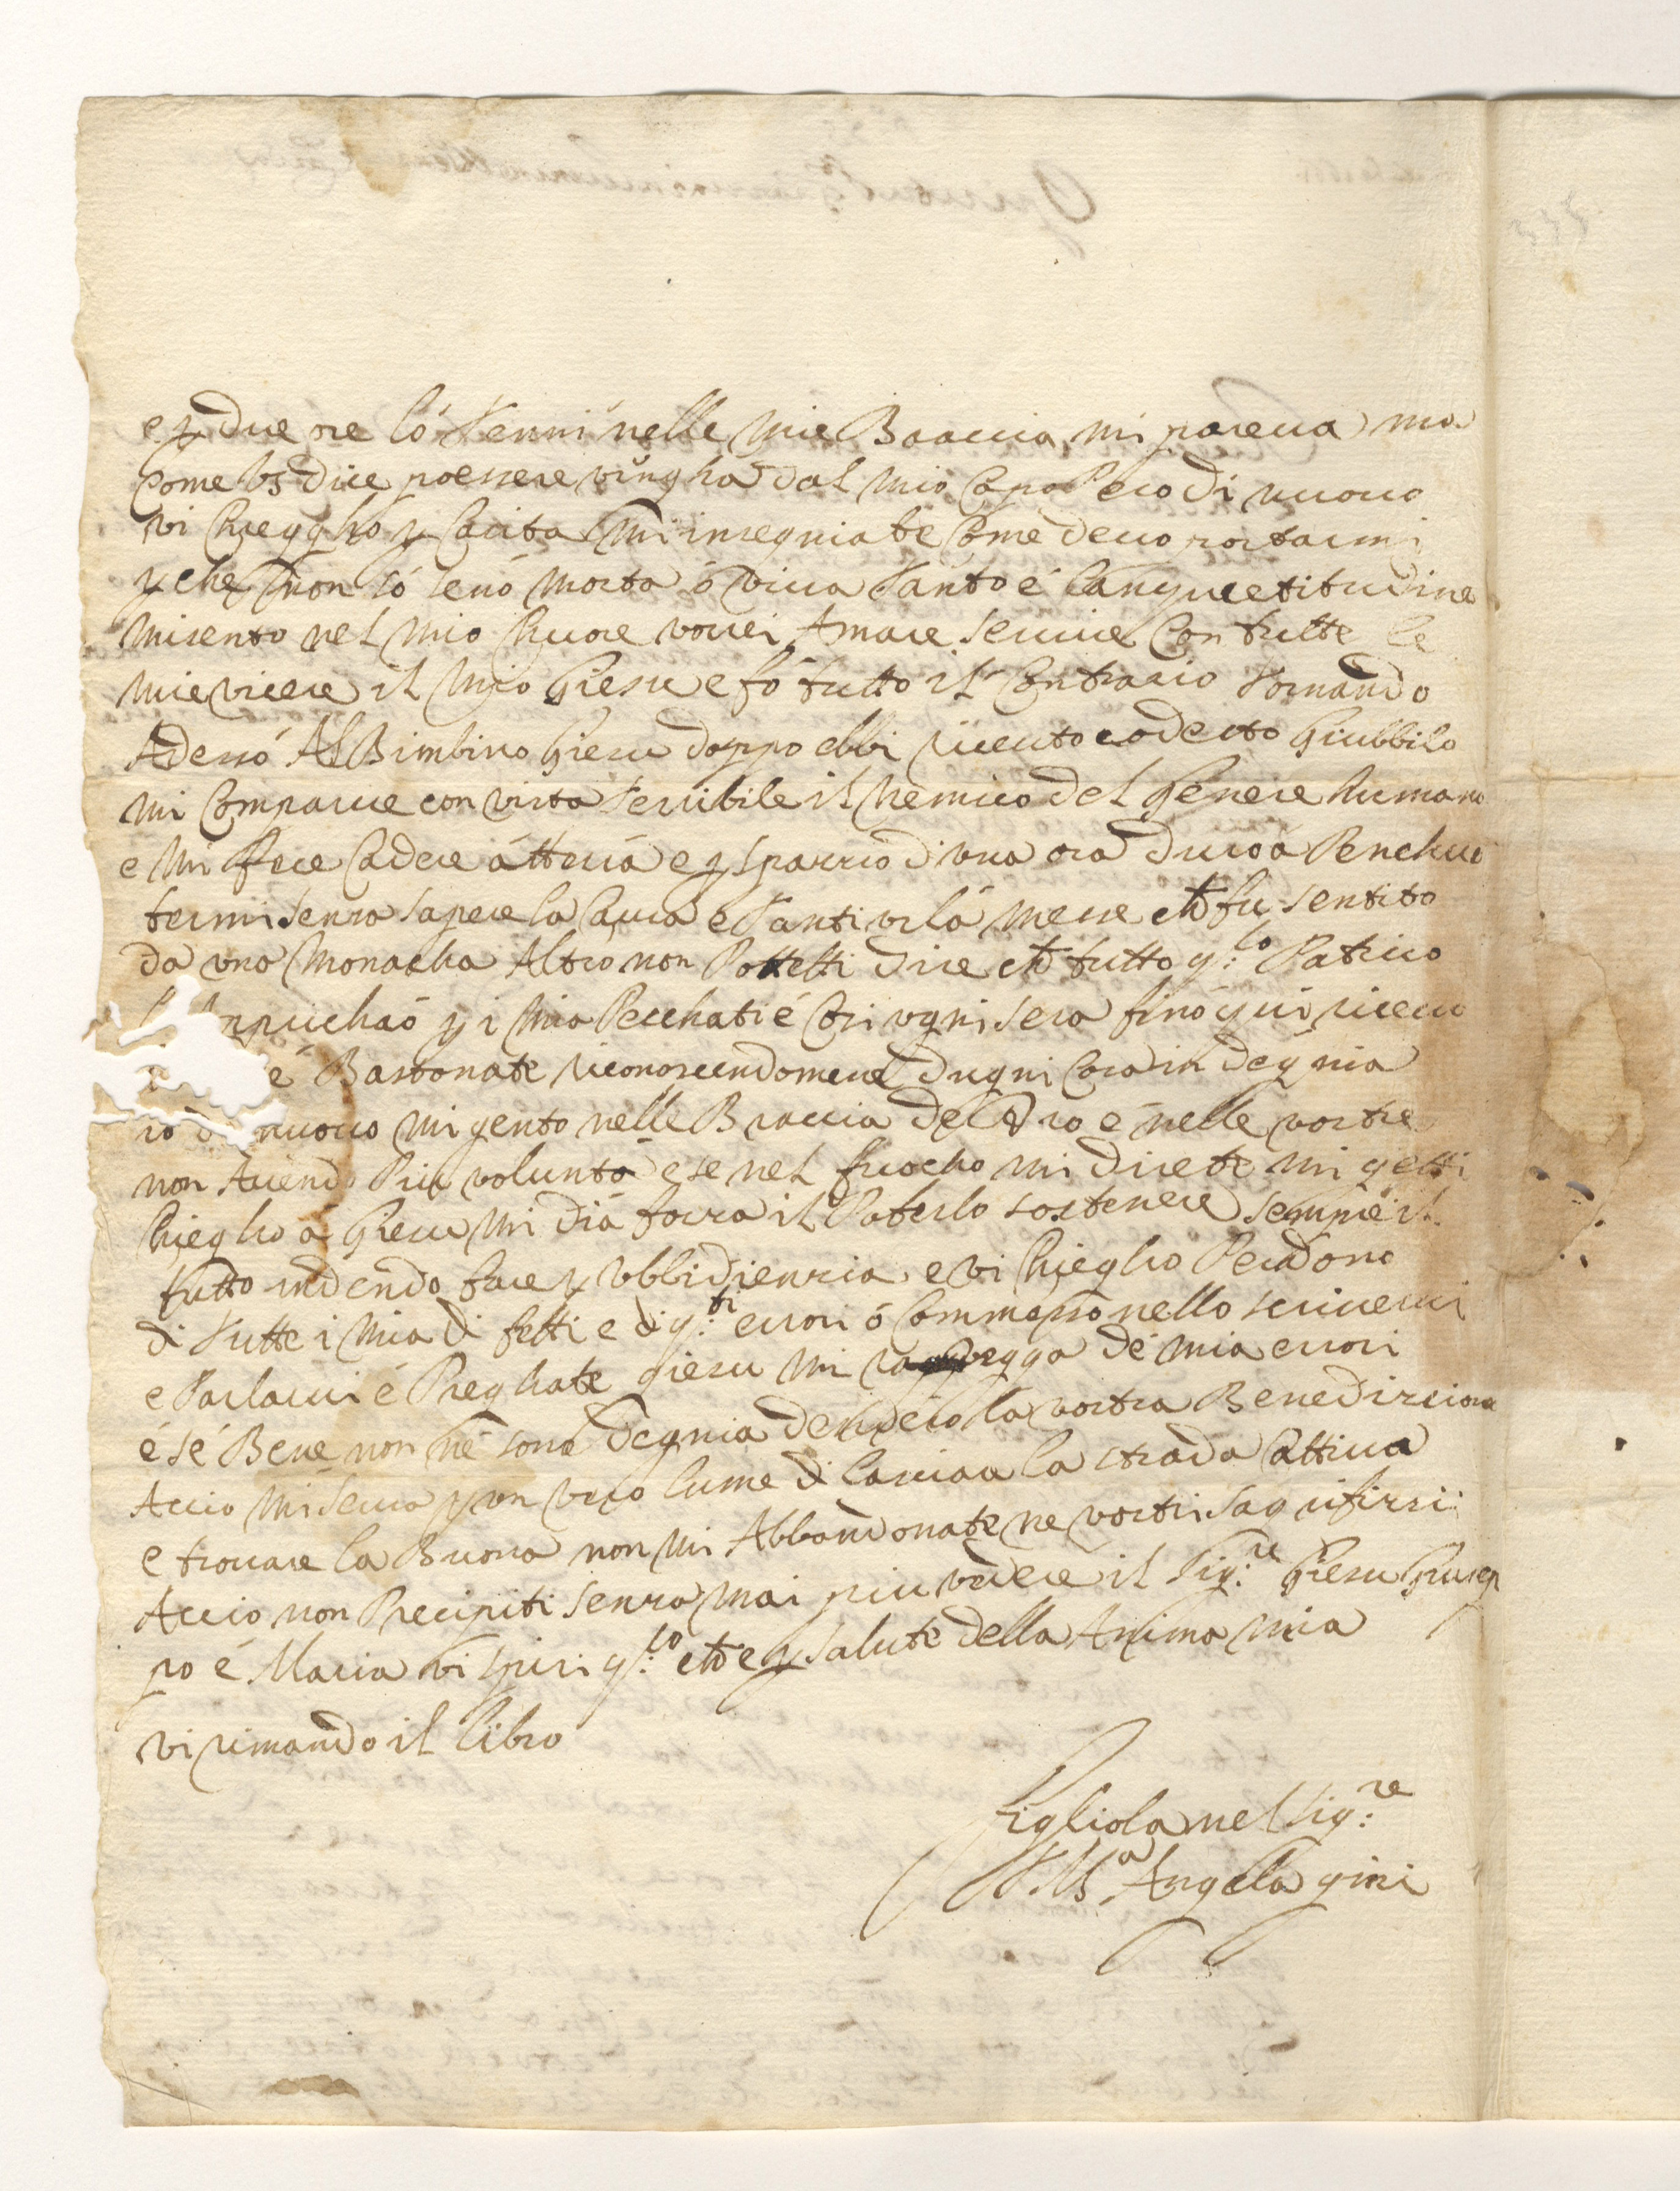 e p due ore ló tenni nelle mie Braccia mi pareva ma
Come VS dice poessere vengha dal mio Capo Però di nuovo
vi Chiegho p Carita mi insegniate Come devo portarmi
p che non só se nó morta ó viva tanto é l'anquietitudine
mi sento nel mio Chuore vorrei Amare servire Con tutte le
mie vicere il mio Giesu e fó tutto il Contrario tornando
Adessó Al Bimbino Giesu doppo ebbi ricevto codesto Giubbilo
mi Comparve con vista terribile il nemico del Genere humano
e mi fece Cadere á tterrá e p spazzio di una ora durò á
termi senza sapere la Causa e tanti vrlá messe che fu sentito
da una Monacha Altro non Pottetti dire che tutto q.lo Patisco
p i mia Pecchati é Cosi vgni sera fino qui ricevo
é Bastonate riconoscendomene d'ugni Cosa indegnia
nuovo mi gento nelle Braccia de é nelle vostre
non Avendo Piu voluntá e se nel fuocho mi direte mi getti
Chiegho á Giesu mi diá forza il Poterlo sostenere sempre il
tutto indendo fare p Vbbidienzia e vi Chiegho Perdono
di tutte i mia difetti e di q.ti errori ó Commesso nello scrivervi
e Parlarvi é Preghate giesu mi de mia errori
é sé Bene non né sono degnia desidero la vostra Benedizione
Accio mi serva p un vero lume di lasciare la strada Cattiva
e trovare la Buona non mi Abbandonate ne vostri Sagrifizi
Accio non Precipiti senza mai piu vedere il Sig.re Giesu Giusep
po é Maria vi spiri q.lo che e p salute della Anima mia
vi rimando il libro
Figliola nel Sig.re
M.a Angela gini